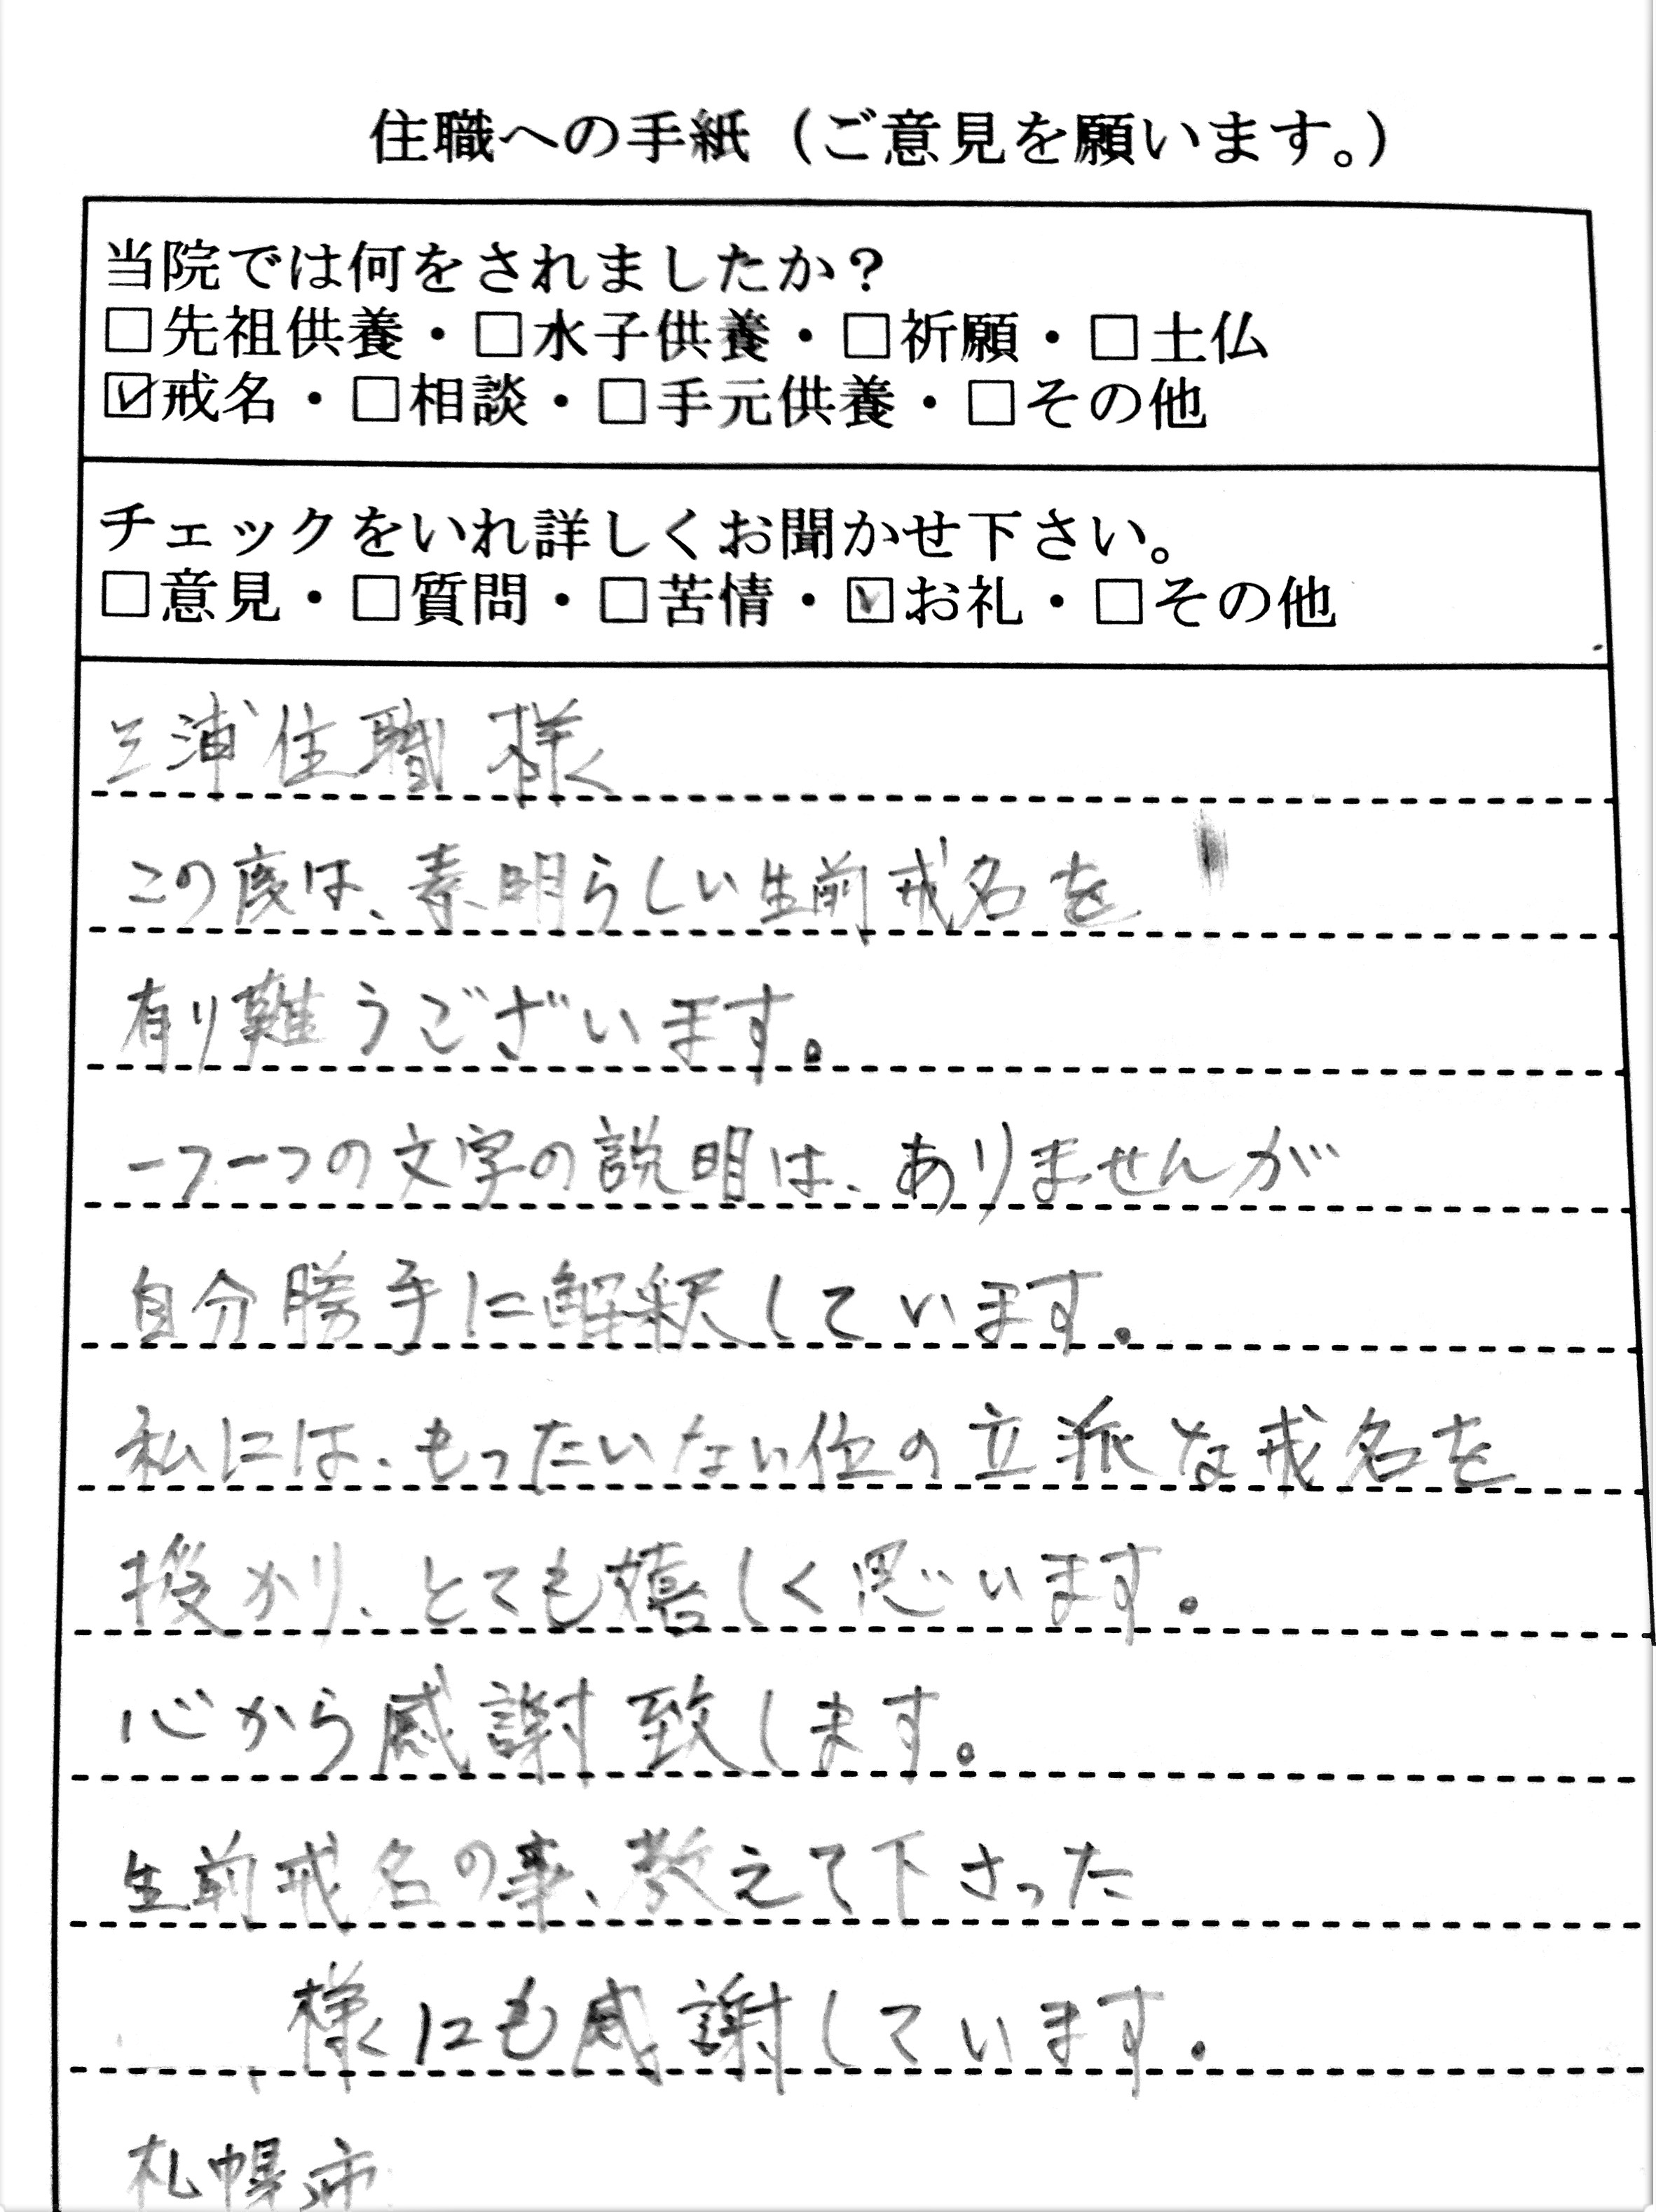 住職への手紙（ご意見を願います。）
当院では何をされましたか？
□先祖供養・□水子供養・□祈願・□土仏
☑戒名・□相談・□手元供養・□その他
チェックをいれ詳しくお聞かせ下さい。
□意見・□質問・□苦情・☑お礼・□その他
三浦住職様
この度は、素晴らしい生前戒名を
有り難うございます。
一つ一つの文字の説明は、ありませんが
自分勝手に解釈しています。
私には、もったいない位の立派な戒名を
授かり、とても嬉しく思います。
心から感謝致します。
生前戒名の事、教えて下さった
様にも感謝しています。
札幌市